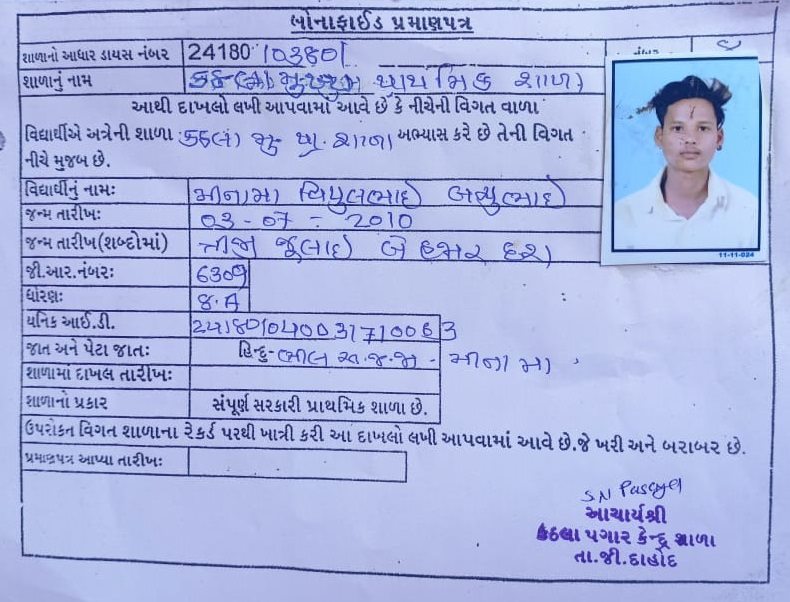 બોનાફાઈડ પ્રમાણપત્ર
શાળાનો આધાર ડાયસ નંબર 24180103801
શાળાનું નામ કઠલા મુખ્ય પ્રાથમિક શાળા
આથી દાખલો લખી આપવામાં આવે છે કે નીચેની વિગત વાળા
વિદ્યાર્થીએ અત્રેની શાળા કઠલા મુ. પ્રા. શાળા અભ્યાસ કરે છે તેની વિગત
નીચે મુજબ છે.
વિદ્યાર્થીનું નામઃ મીનામા વિપુલભાઈ બચુભાઈ
જન્મ તારીખઃ 03-07-2010
જન્મ તારીખ(શબ્દોમાં) ત્રીજી જૂલાઈ બે હજાર દશ
જી.આર.નંબરઃ 6309
ધોરણઃ 8.A
યનિક આઈ.ડી. 241801040031710063
જાત અને પેટા જાતઃ હિન્દુ-ભીલ અ.જ.જા - મીનામા
શાળામાં દાખલ તારીખઃ
શાળાનો પ્રકાર સંપૂર્ણ સરકારી પ્રાથમિક શાળા છે.
ઉપરોકત વિગત શાળાના રેકર્ડ પરથી ખાત્રી કરી આ દાખલો લખી આપવામાં આવે છે.જે ખરી અને બરાબર છે.
પ્રમાણપત્ર આપ્યા તારીખઃ
11-11-024
આચાર્યશ્રી
કઠલા પગાર કેન્દ્ર શાળા
તા.જી.દાહોદ